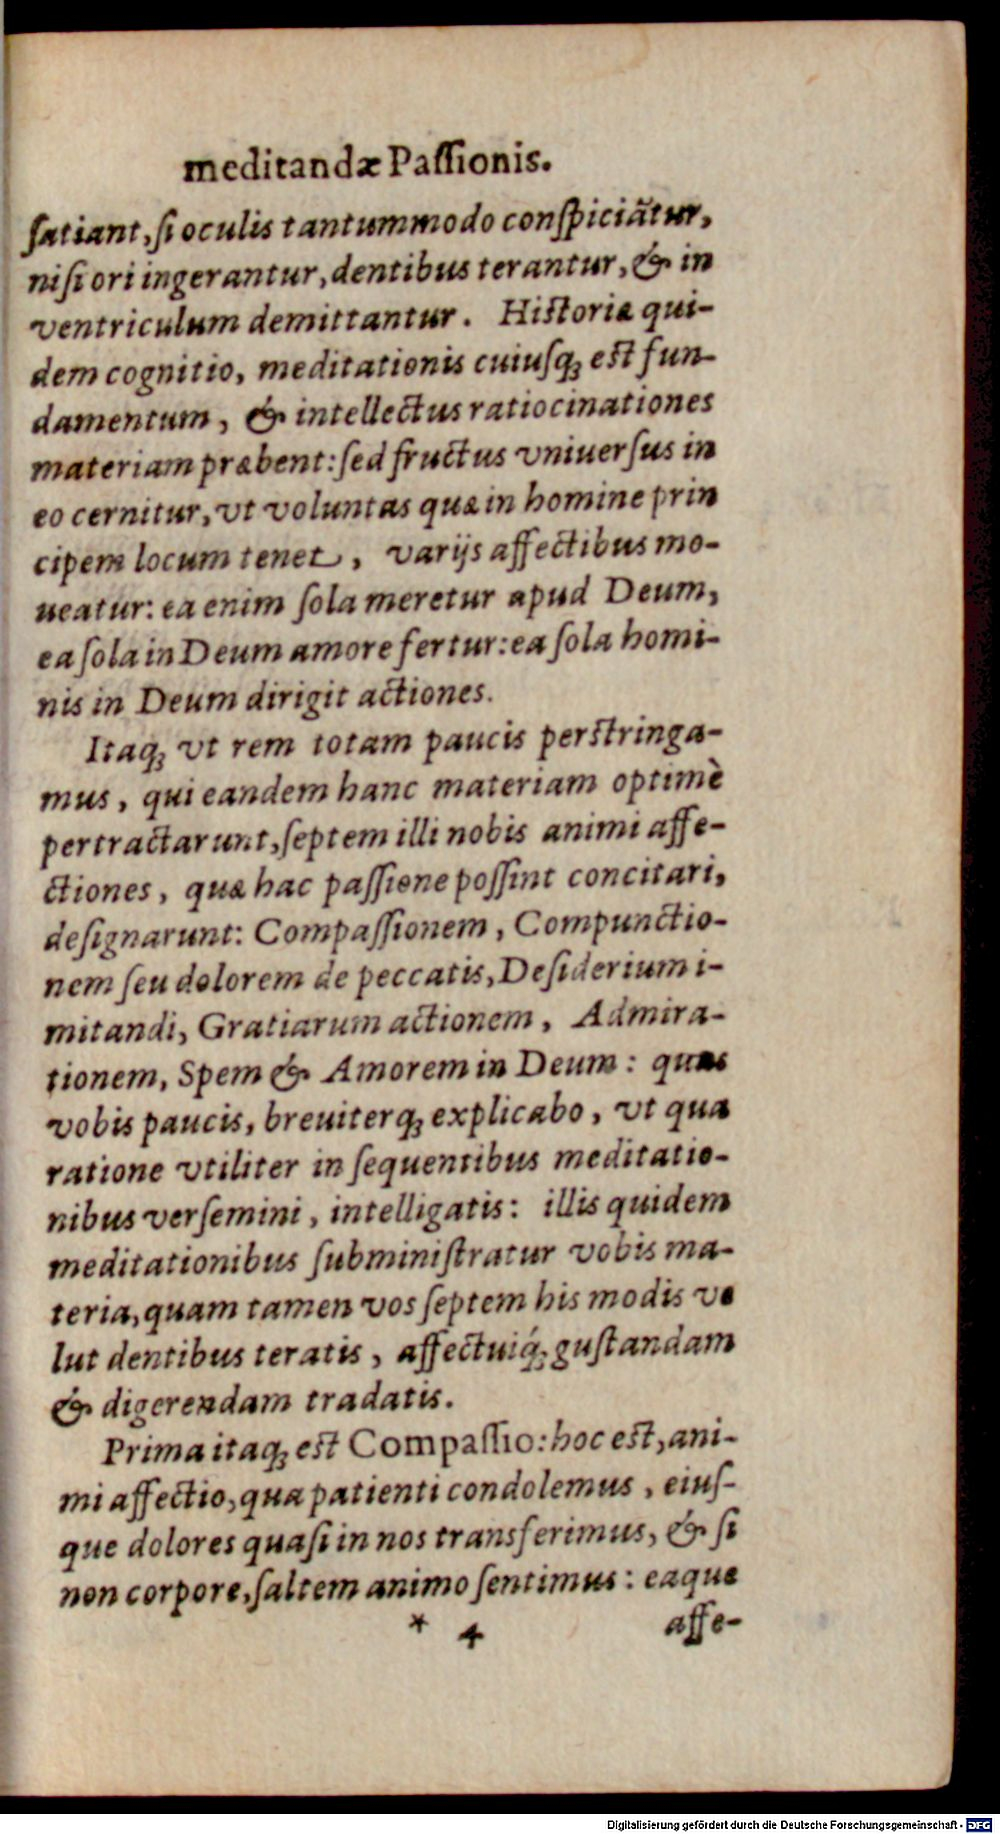 meditandæ Paſſionis.
ſatiant, ſi oculis tantummodo conſpiciãtur,
niſi ori ingerantur, dentibus terantur, & in
ventriculum demittantur. Hiſtoriæ qui-
dem cognitio, meditationis cuiuſq; eſt fun-
damentum, & intellectus ratiocinationes
materiam præbent: ſed fructus vniuerſus in
eo cernitur, vt voluntas quæ in homine prin
cipem locum tenet, varijs affectibus mo-
ueatur: ea enim ſola meretur apud Deum,
ea ſola in Deum amore fertur: ea ſola homi-
nis in Deum dirigit actiones.
Itaq; vt rem totam paucis perſtringa-
mus, qui eandem hanc materiam optimè
pertractarunt, ſeptem illi nobis animi affe-
ctiones, quæ hac paſſione poſſint concitari,
deſignarunt: Compaſſionem, Compunctio-
nem ſeu dolorem de peccatis, Deſiderium i-
mitandi, Gratiarum actionem, Admira-
tionem, Spem & Amorem in Deum: quas
vobis paucis, breuiterq; explicabo, vt qua
ratione vtiliter in ſequentibus meditatio-
nibus verſemini, intelligatis: illis quidem
meditationibus ſubminiſtratur vobis ma-
teria, quam tamen vos ſeptem his modis ve
lut dentibus teratis, affectuiq́; guſtandam
& digerendam tradatis.
Prima itaq; eſt Compaſſio: hoc eſt, ani-
mi affectio, qua patienti condolemus, eiuſ-
que dolores quaſi in nos transferimus, & ſi
non corpore, ſaltem animo ſentimus: eaque
* 4 affe-
Digitalisierung gefördert durch die Deutsche Forschungsgemeinschaft - DFG